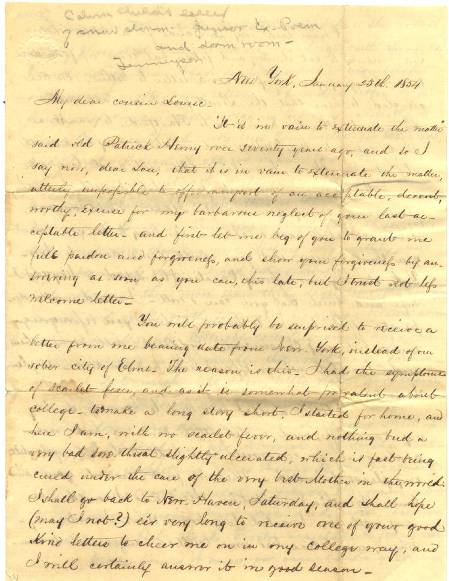 Calvin Child's letter
of snow storm - Junior Ex - Poem
and dorm room -
Tennyson
New York, January 25th. 1854
My dear cousin Louise -
It is in vain to extenuate the matter
said old Patrick Henry over seventy years ago, and so I
say now, dear Lou, that it is in vain to extenuate the matter,
utterly impossible to offer any sort of an acceptable, decent,
worthy, excuse for my barbarous neglect of your last ac-
ceptable letter - and first let me beg of you to grant me
full pardon and forgiveness, and show your forgiveness by an-
swering as soon as you can, this late, but I trust not less
welcome letter -
You will probably be surprised to receive a
letter from me bearing date from New York, instead of our
sober city of Elms - The reason is this - I had the symptoms
of scarlet fever, and as it is somewhat prevalent about
college - to make a long story short, I started for home, and
here I am, with no scarlet fever, and nothing but a
very bad sore throat slightly ulcerated, which is fast being
cured under the care of the very best Mother in the world.
I shall go back to New Haven, Saturday, and shall hope
(may I not?) e'er very long to receive one of your good
kind letters to cheer me on in my college way, and
I will certainly answer it in good season -